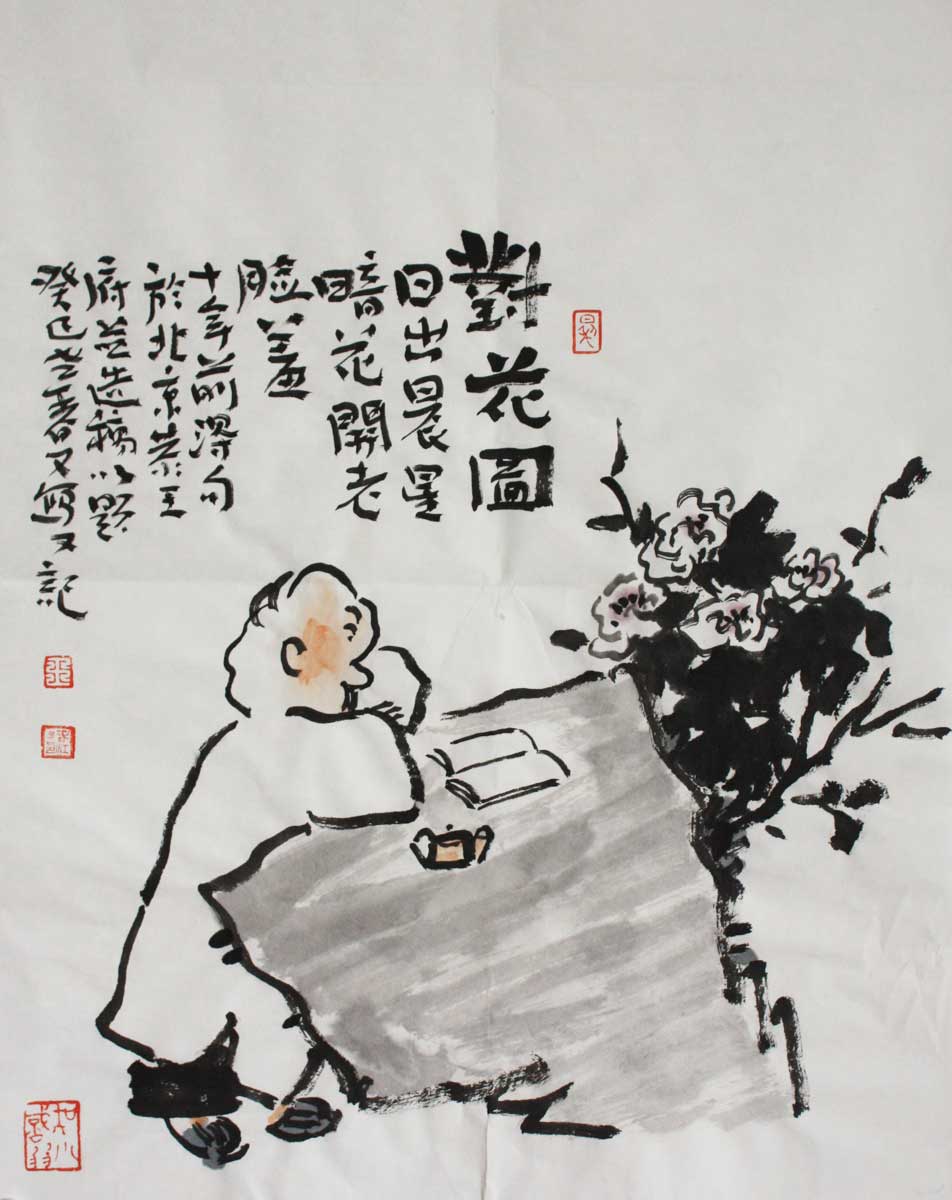 對花圖
日出晨星
暗花開老
臉羞
十年前得句
於北京恭王
府並造稿以題
癸巳之春又寫又記